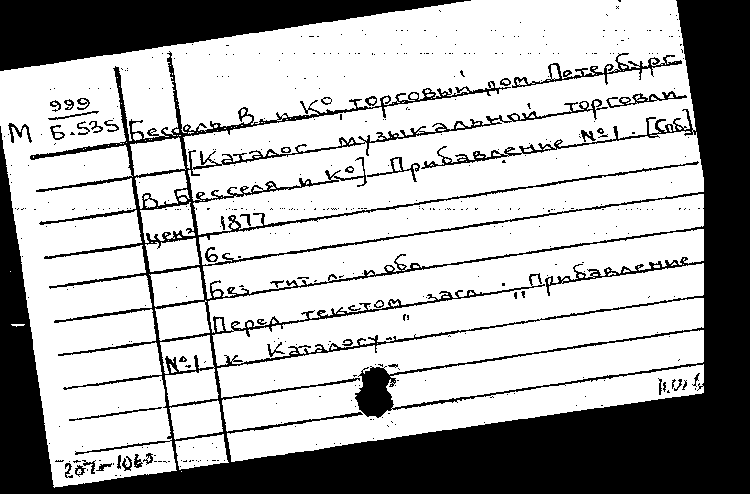 999
М Б.535 Бессель, В. и К°, торговый дом. Петербург
[Каталог музыкальной торговли
В. Бесселя и К°] Прибавление №1. [Спб.]
ценз. 1877
6 с.
Без тит. л. и обл.
Перед текстом загл.: „Прибавление
№1 к Каталогу..."